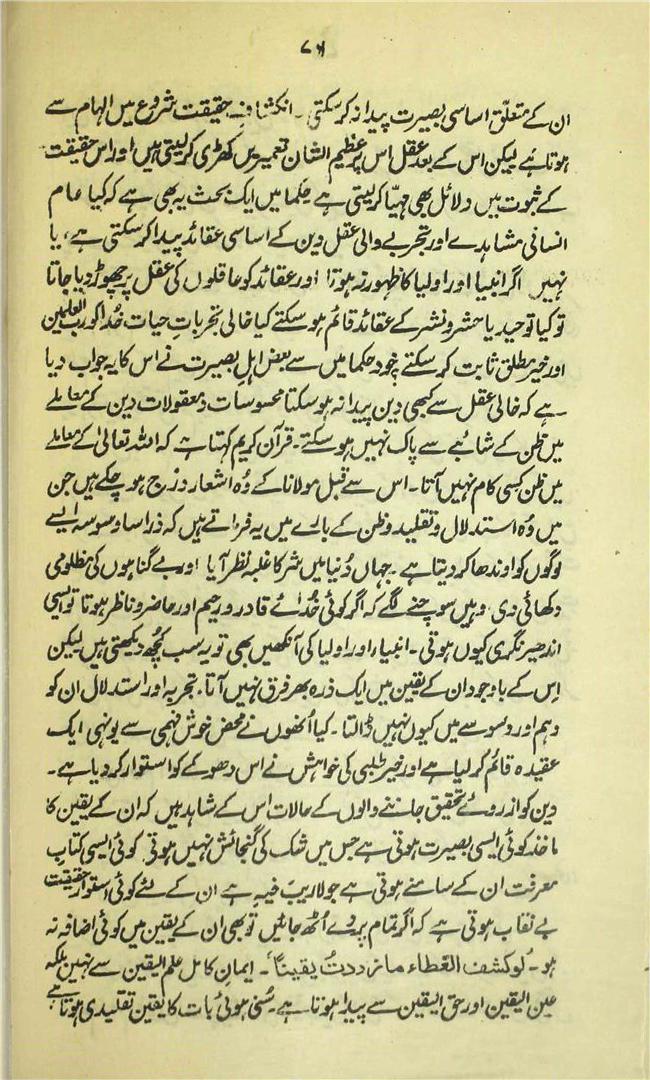 ۷۵
ان کے متعلّق اساسی بصیرت پیدا نہ کر سکتی ۔ انکشافِ حقیقت شروع میں الہام سے
ہوتا ہے لیکن اس کے بعد عقل اس پر عظیم الشان تعمیریں کھڑی کر لیتی ہیں اور اس حقیقت
کے ثبوت میں دلائل بھی مہیّا کر لیتی ہے حکما میں ایک بحث یہ بھی ہے کہ کیا عام
انسانی مشاہدے اور تجربے والی عقل دین کے اساسی عقائد پیدا کر سکتی ہے ، یا
نہیں اگر انبیا اور اولیا کا ظہور نہ ہوتا اور عقائد کو عاقلوں کی عقل پر چھوڑ دیا جاتا
تو کیا توحید یا حشر و نشر کے عقائد قائم ہو سکتے کیا خالی تجرباتِ حیات خدا کو رب العلمین
اور خیرِ مطلق ثابت کر سکتے خود حکما میں سے بعض اہلِ بصیرت نے اس کا یہ جواب دیا
ہے کہ خالی عقل سے کبھی دین پیدا نہ ہو سکتا محسوسات و معقولات دین کے معاملے
میں ظن کے شائبے سے پاک نہیں ہو سکتے ۔ قرآن کریم کہتا ہے کہ اللہ تعالیٰ کے معاملے
میں ظن کسی کام نہیں آتا ۔ اس سے قبل مولانا کے وُہ اشعار درج ہو چکے ہیں جن
میں وُہ استدلال و تقلید و ظن کے بارے میں یہ فرماتے ہیں کہ ذرا سا وسوسہ ایسے
لوگوں کو اوندھا کر دیتا ہے ۔ جہاں دُنیا میں شر کا غلبہ نظر آیا اور بے گناہوں کی مظلومی
دکھائی دی وہیں سوچنے لگے کہ اگر کوئی خُدائے قادر و رحیم اور حاضر و ناظر ہوتا تو ایسی
اندھیر نگری کیوں ہوتی ۔ انبیاء اور اولیا کی آنکھیں بھی تو یہ سب کچھ دیکھتی ہیں لیکن
اِس کے باوجود ان کے یقین میں ایک ذرہ بھر فرق نہیں آتا ۔ تجربہ اور استدلال ان کو
وہم اور وسوسے میں کیوں نہیں ڈالتا ۔ کیا اُنھوں نے محض خوش فہمی سے یونہی ایک
عقیدہ قائم کر لیا ہے اور خیر طلبی کی خواہش نے اس دھوکے کو استوار کر دیا ہے ۔
دین کو از روئے تحقیق جاننے والوں کے حالات اس کے شاہد ہیں کہ ان کے یقین کا
ماخذ کوئی ایسی بصیرت ہوتی ہے جس میں شک کی گنجائش نہیں ہوتی کوئی ایسی کتابِ
معرفت ان کے سامنے ہوتی ہے جو لاریبَ فیہِ ہے ان کے لئے کوئی استوار حقیقت
بے نقاب ہوتی ہے کہ اگر تمام پردے اُٹھ جائیں تو بھی ان کے یقین میں کوئی اضافہ نہ
ہو ۔ ’لوکشف الغطاء ما زددتُ یقیناً‘ ۔ ایمانِ کامل علم الیقین سے نہیں بلکہ
عین الیقین اور حق الیقین سے پیدا ہوتا ہے ۔ سُنی ہوئی بات کا یقین تقلیدی ہوتا ہے